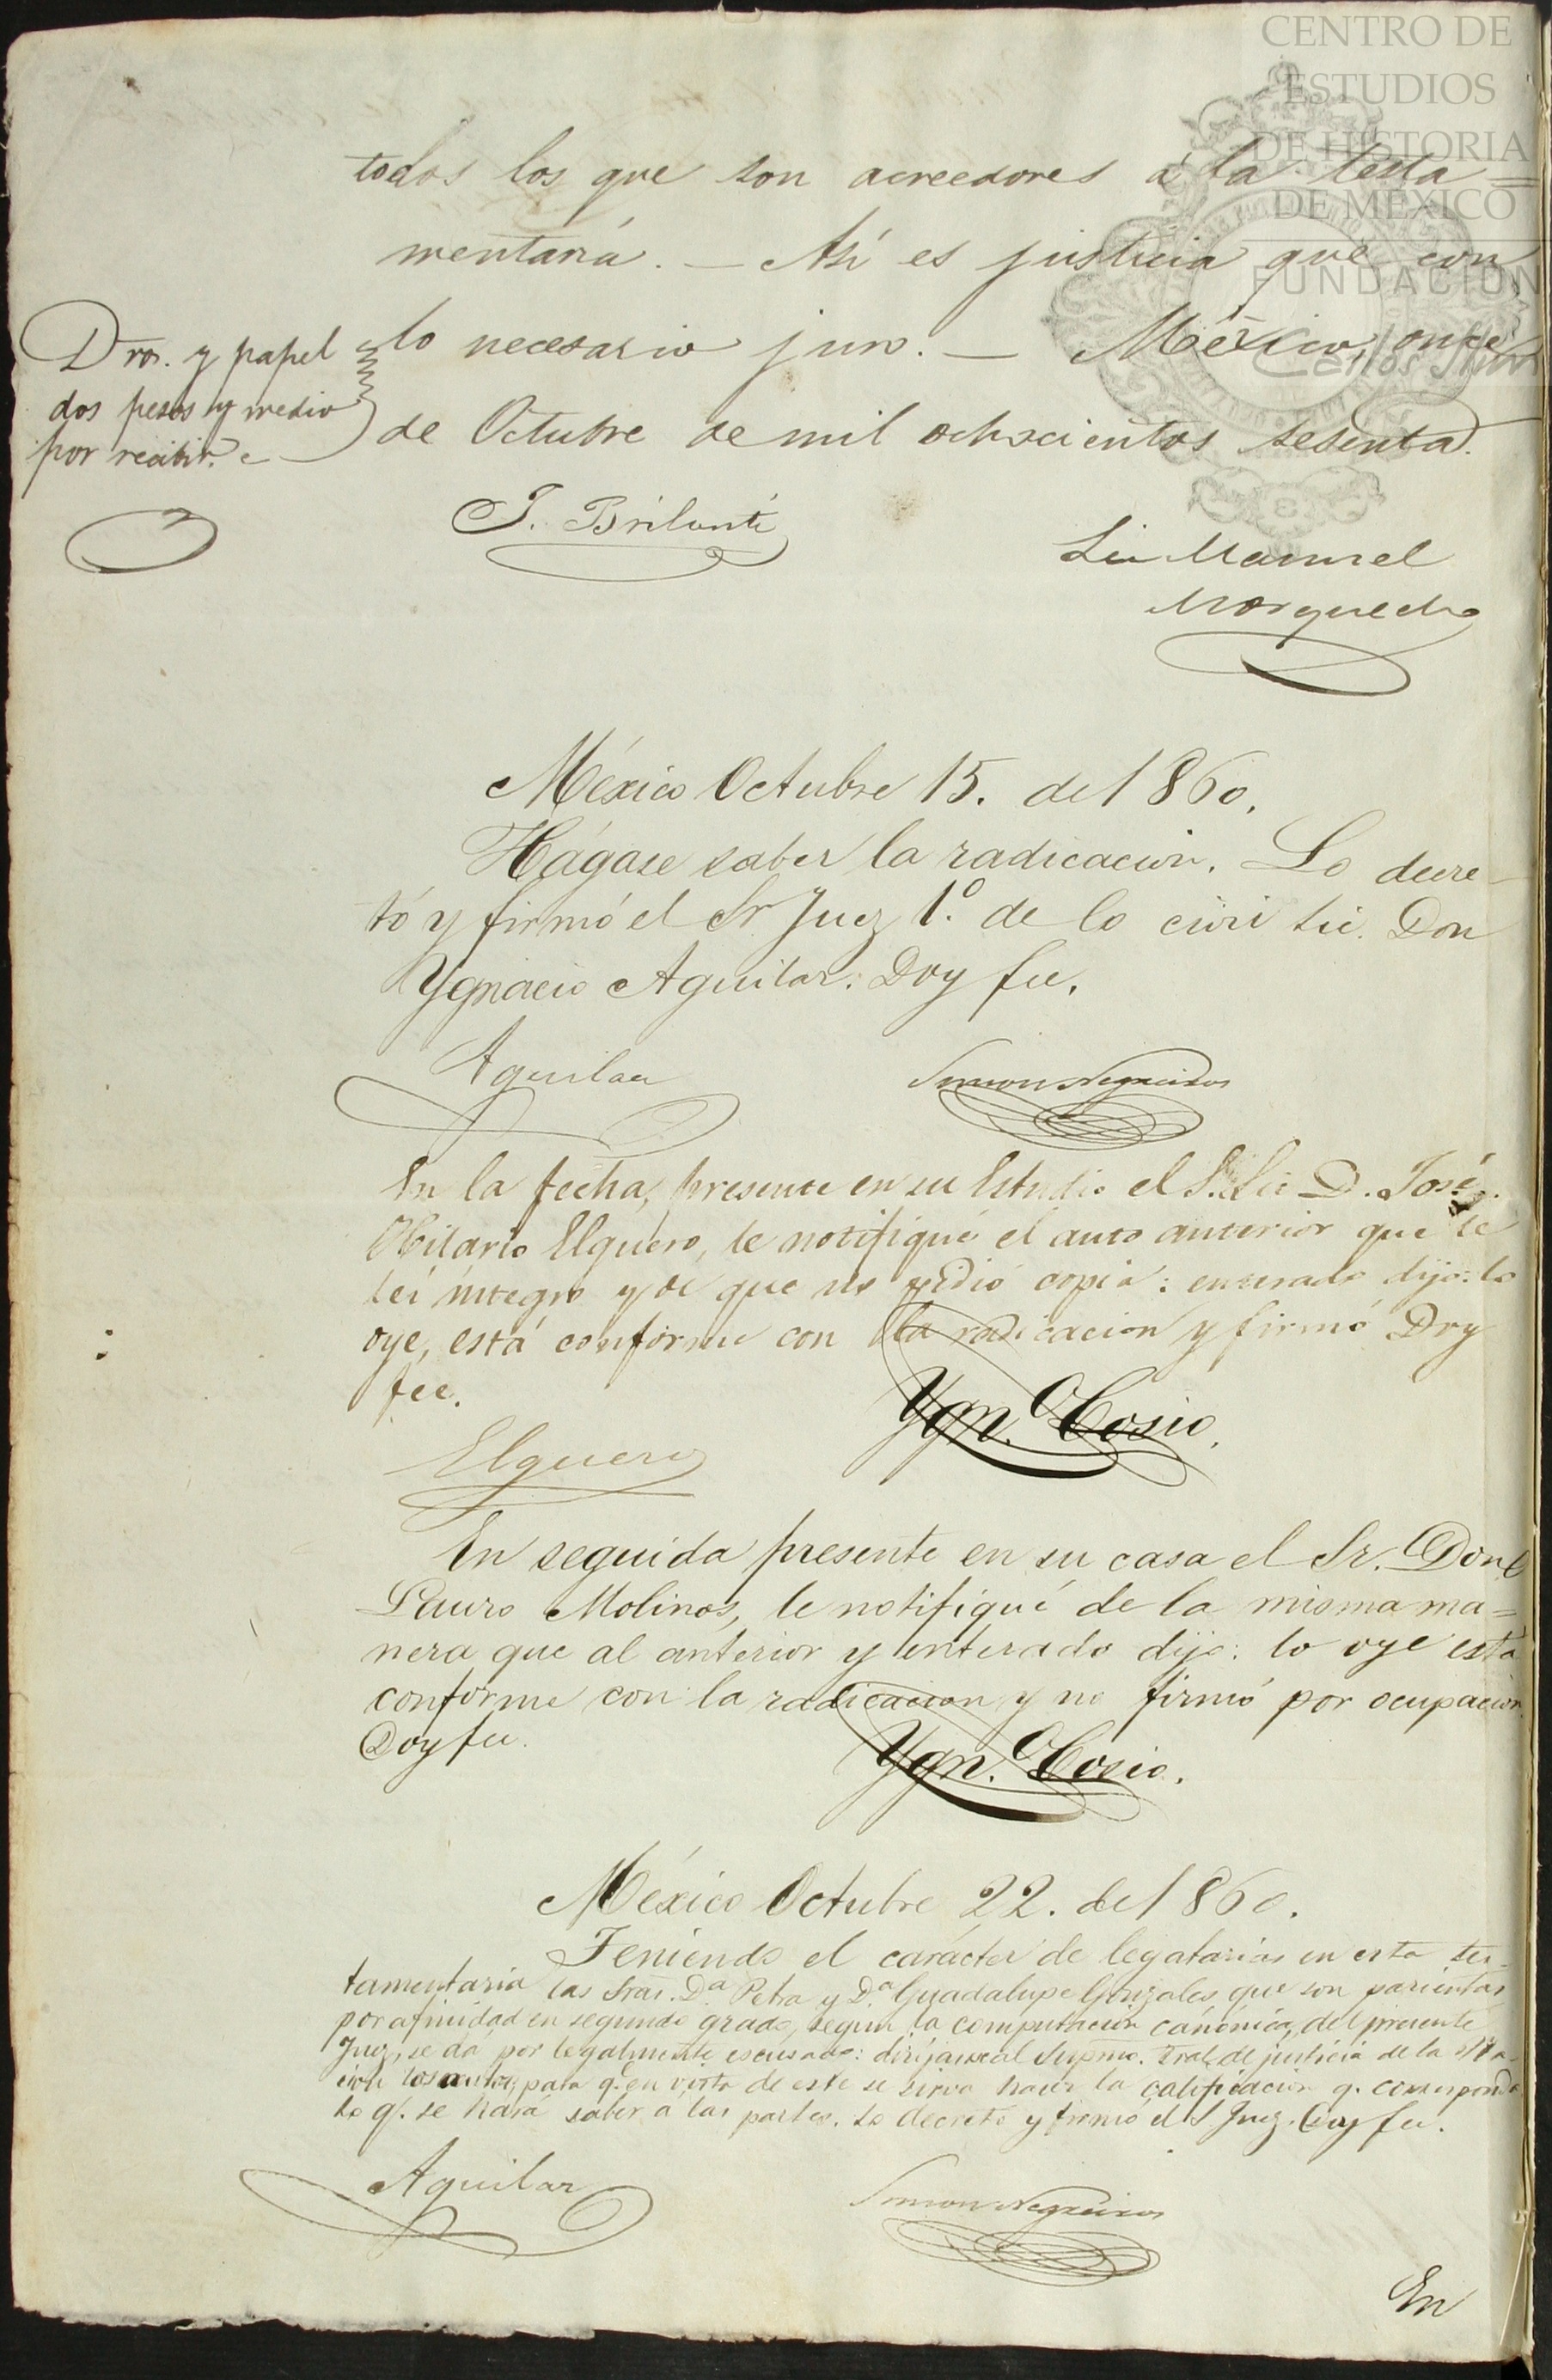 CENTRO DE
ESTUDIOS
DE HISTORIA
DE MÉXICO
FUNDACIÓN
Carlos Slim
todos los que son acreedores á la testa=
mentaría. — Así es justicia que con
lo necesario juro. — México, once
de Octubre de mil ochocientos sesenta.
Dros. y papel
dos pesos y medio
por recibir.
Lic Manuel
México Octubre 15. de 1860.
Hágase saber la radicacion. Lo decre-
tó y firmó el Sr Juez 1.º de lo civil Lic. Don
Ygnacio Aguilar. Doy fee.
Aguilar
Simon Negreiros
En la fecha, presente en su Estudio el S. Lic D. José
Hilario Elguero, le notifiqué el auto anterior que le
leí integro y de que no pidió copia: enterado dijo: lo
oye, está conforme con la radicacion y firmó Doy
fee.
Elguero
Ygn.º Cosio.
En seguida presente en su casa el Sr. Don
Lauro Molinos, le notifiqué de la misma ma=
nera que al anterior y enterado dijo: lo oye está
conforme con la radicacion y no firmó por ocupacion
Doy fee.
Ygn.º Cosio.
México Octubre 22. de 1860.
Teniendo el carácter de legatarias en esta tes-
tamentaria las Sras. D.ª Petra y D.ª Guadalupe Gonzales que son parientas
por afinidad en segundo grado, segun la computacion canónica, del presente
Juez, se dá por legalmente escusado: dirijanse al Supmo. Tral. de justicia de la Na-
cion los autos, para q. en vista de este se sirva hacer la calificacion q. corresponda
lo q. se hará saber á las partes. Lo decretó y firmó el S. Juez. Doy fee.
Aguilar
Simon Negreiros
En